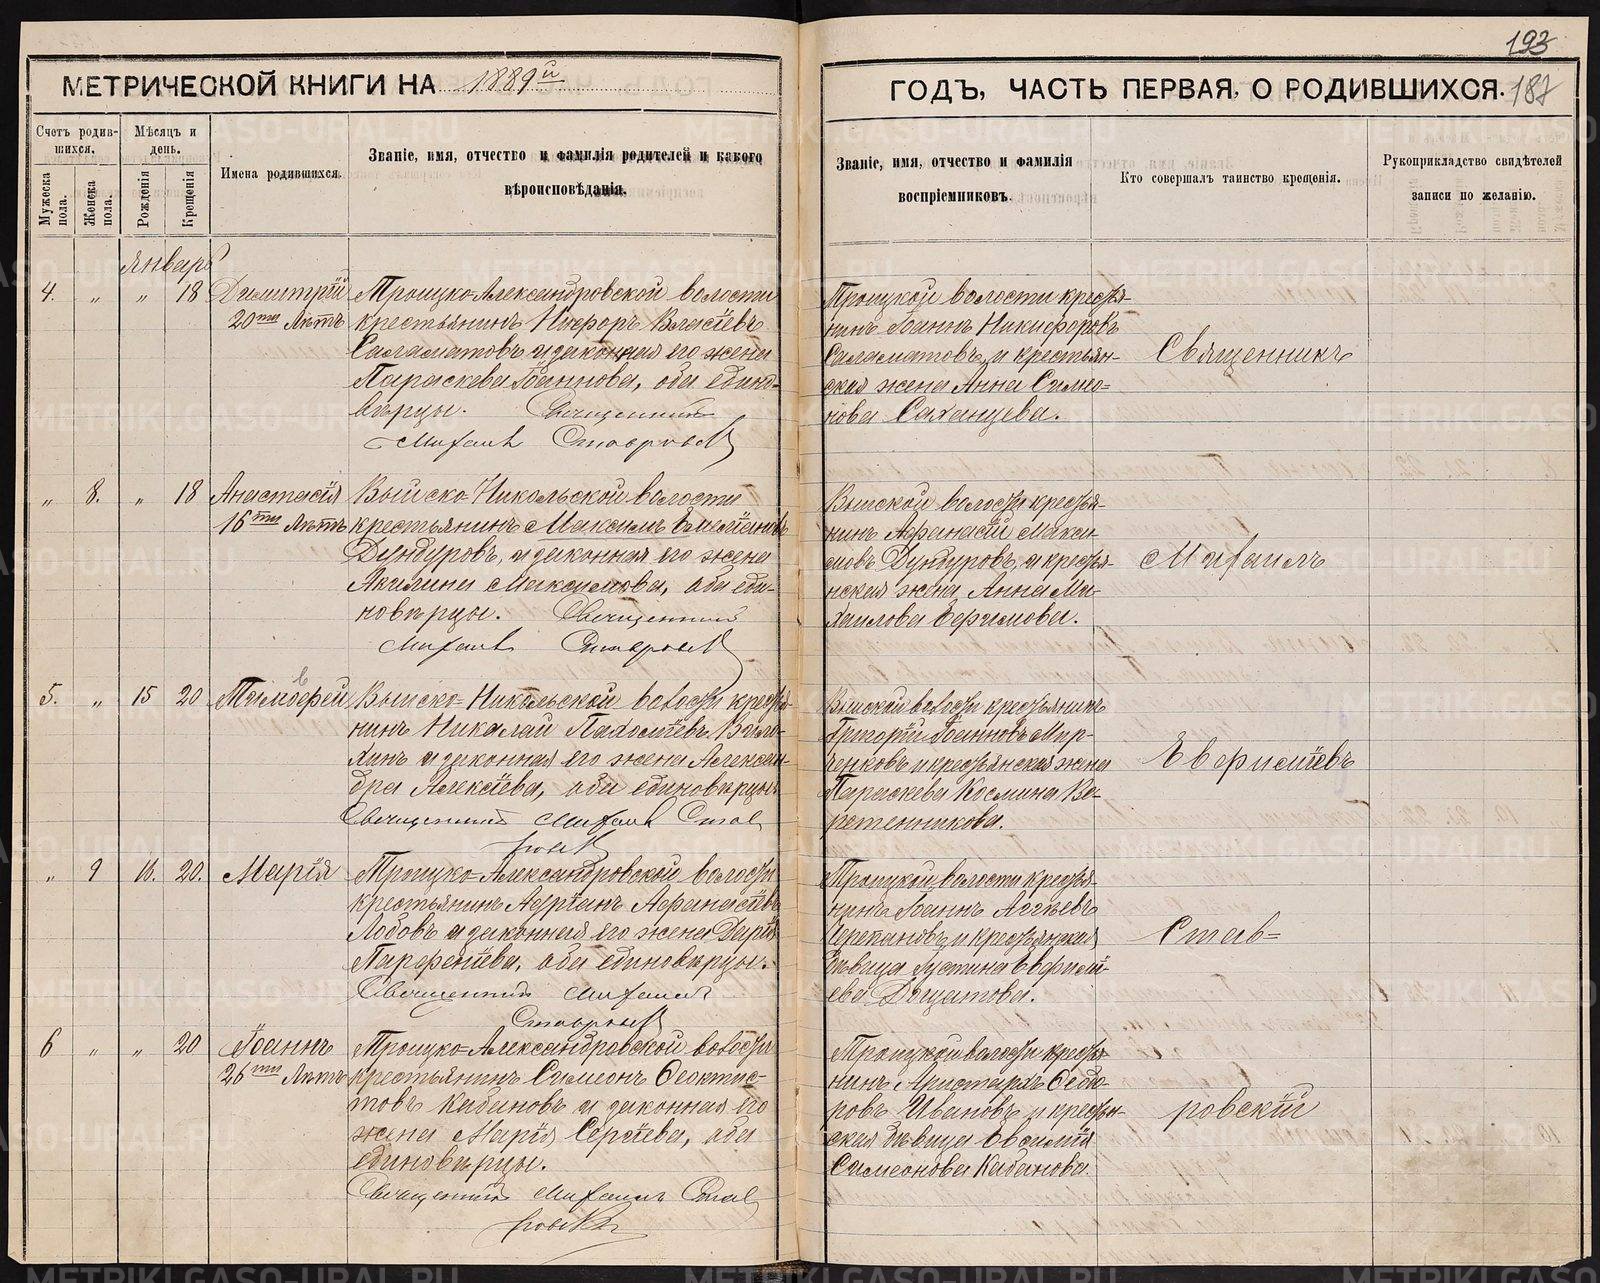 193
МЕТРИЧЕСКОЙ КНИГИ НА 1889й
ГОДЪ, ЧАСТЬ ПЕРВАЯ, О РОДИВШИХСЯ. 187
Счетъ родив-
шихся.
Мужеска пола.
Женска пола.
Мѣсяцъ и
день.
Рожденія
Крещенія
Имена родившихся.
Званіе, имя, отчество и фамилія родителей и какого
вѣроисповѣданія.
Званіе, имя, отчество и фамилія
воспріемниковъ.
Кто совершалъ таинство крещенія.
Рукоприкладство свидѣтелей
записи по желанію.
Январь
4. „ „ 18 Димитрій
20ти Лѣтъ
Троицко-Александровской волости
крестьянинъ Никфоръ Власіевъ
Саламатовъ и законная его жена
Параскева Іоаннова, оба едино-
вѣрцы. Священникъ
Михаилъ Ставровскій
Троицкой волости крестья-
нинъ Іоаннъ Никифоровъ
Саламатовъ, и крестьян-
ская жена Анна Симео-
нова Саханцева.
Священникъ
„ 8. „ 18 Анастасія
16ти Лѣтъ
Выйско-Никольской волости
крестьянинъ Максимъ Емеліановъ
Дундуровъ, и законная его жена
Акилина Максимова, оба еди-
новѣрцы. Священникъ
Михаилъ Ставровскій
Выйской волости крестья-
нинъ Афанасій Макси-
мовъ Дундуровъ, и крестья-
нская жена Анна Ми-
хаилова Ефимова.
Михаилъ
5. „ 15 20 Тимофей
Выйско-Никольской волости крестья-
нинъ Николай Пахоміевъ
и законная его жена Алексан-
дра Алексіева, оба единовѣрцы
Священникъ Михаилъ Став
ровскій
Выйской волости крестьянинъ
Григорій Іоанновъ Мир-
ченковъ и крестьянская жена
Параскева Космина Ве-
ретенникова.
Евфиміевъ
„ 9 16. 20. Марія
Троицко-Александровской волости
крестьянинъ Адріанъ Афанасіевъ
Лобовъ и законная его жена Дарія
Парфеніева, оба единовѣрцы.
Священникъ Михаилъ
Ставровскій
Троицкой волости крестья-
нинъ Іоаннъ
Черепановъ и крестьянская
дѣвица Іустина Евфимі-
ева
Став-
6 „ „ 20 Іоаннъ
26ти Лѣтъ
Троицко-Александровской волости
крестьянинъ Симеонъ Феоктис-
товъ Кабановъ и законная его
жена Марія Сергіева, оба
единовѣрцы.
Священникъ Михаилъ Став
ровскій
Троицкой волости крестья-
нинъ Аристархъ Федо-
ровъ Ивановъ и крестьян-
ская дѣвица Евсимія
Симеонова Кабанова.
ровскій